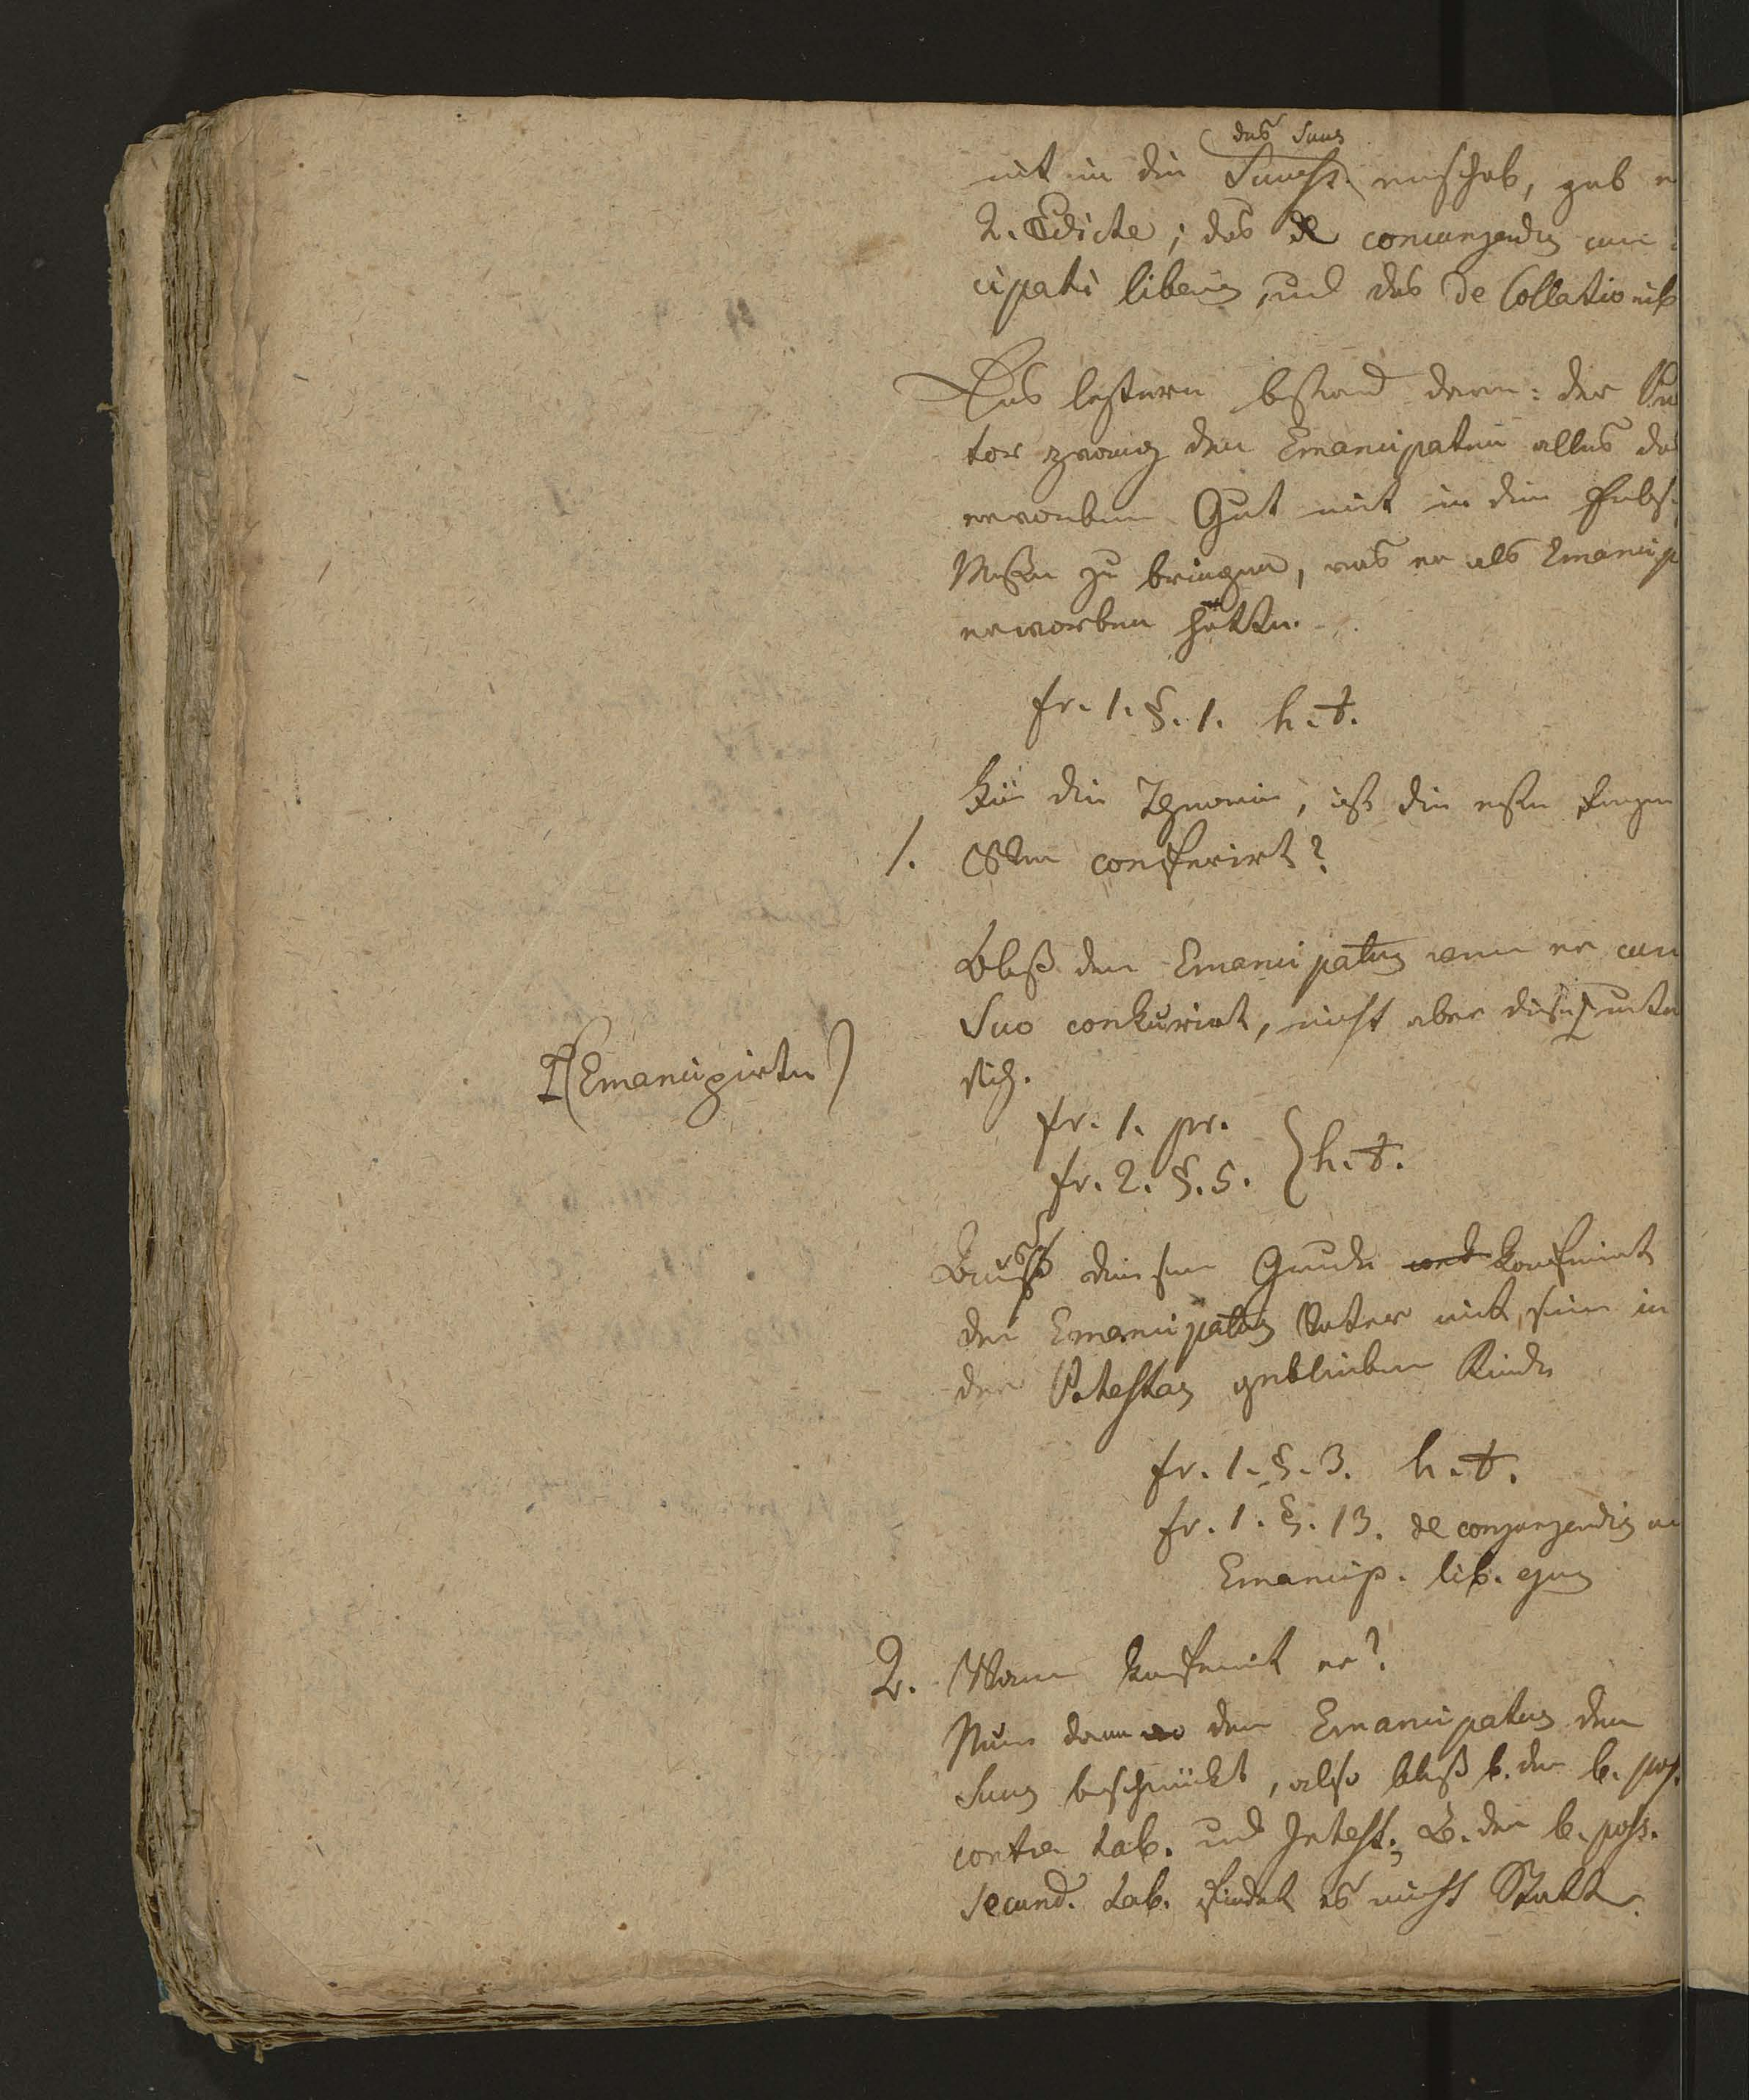 das Suus
mit in die Success. einschob, gab e
2. Edicte; das de conjungendis cum
cipati liberis, und das de Collationib
Das letztere bestand darin: der Prä
tor zwang den Emancipaten alles das
erworbene Gut mit in die Erbs-
Masse zu bringen, was er als Emancip
erworben hätte.
fr. 1. §. 1. h. t.
Für die Theorie, ist die erste Frage
1. Wer conferirt?
Blos der Emancipatus wenn er cum
Suo conkurirt, nicht aber diese unter
(Emancipirte)
sich.
fr. 1. pr.
fr. 2. §. 5. } h. t.
Aus diesem Grunde conferirt
der Emancipatus Vater mit seine in
der Potestas geblieben Kinder
fr. 1. §. 3. h. t.
fr. 1. §. 13. de conjungendis
Emancip. lib. ejus
2. Wann konferirt er?
Nur dann wo der Emancipatus den
Suus beschränkt, also blos b. der b. poss.
contra tab. und Intest; B. der b. poss.
secund. tab. findet es nicht Statt.